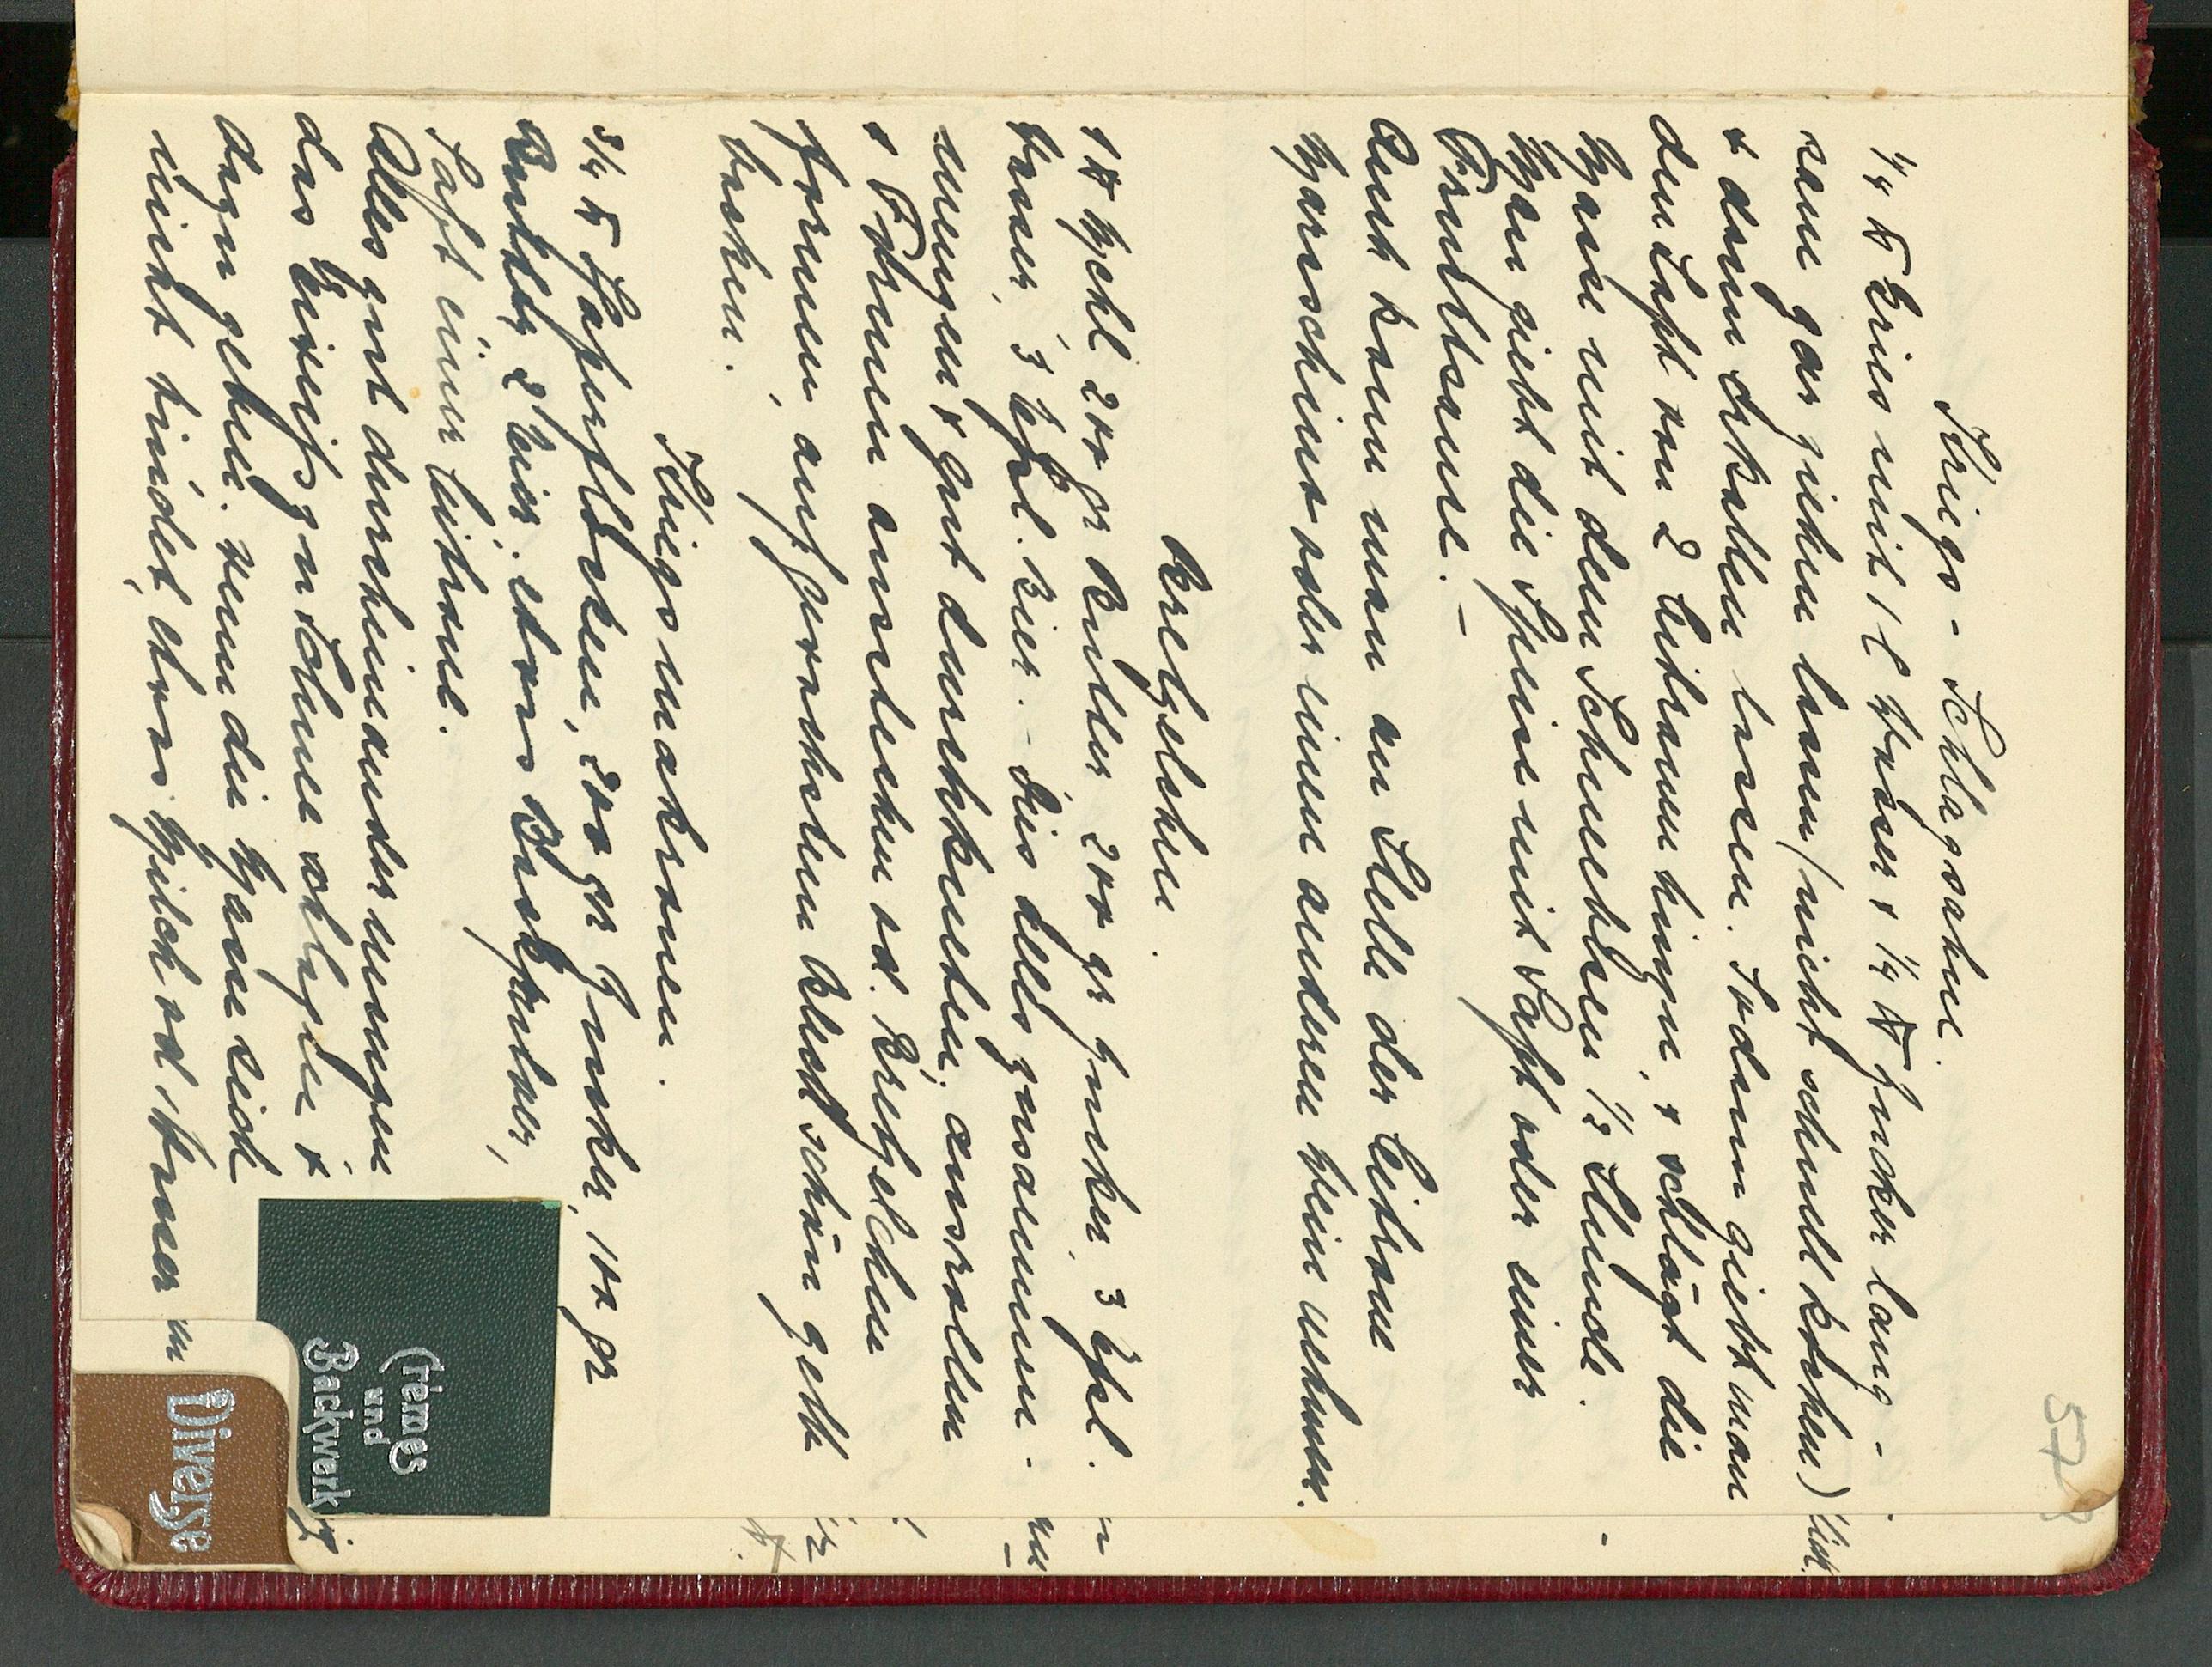 57
Kriegs-Schlagsahne.
1/4 ℔ Gries mit 1 l Wasser & 1/4 ℔ Zucker lang-
sam gar ziehen lassen (nicht schnell kochen)
& dann erkalten lassen. Sodann giebt man
den Saft von 2 Citronen hinzu, & schlägt die
Masse mit dem Schneebesen 1/2 Stunde.
Man giebt die Speise mit Saft oder einer
Fruchtsauce. -
Auch kann man an Stelle der Citrone
Maraschino oder einen anderen Wein nehmen.
Brezelchen.
1 ℔ Mehl 200 gr Butter 200 gr Zucker, 3 Eßl.
Wasser, 3 Eßl. Bier. - Dies alles zusammen-
mengen & gut durchkneten, ausrollen
& Formen ausstechen od. Brezelchen
formen, auf gewachstem Blech schön gelb
backen.
Kriegsmakronen.
3/4 ℔ Haferflocken, 200 gr Zucker, 100 gr
Butter, 2 Eier, etwas Backpulver,
Saft einer Citrone.
Alles gut durcheinander mengen
das Eiweiß zu Schnee schlagen &
dazu geben. Wenn die Masse sich
nicht bindet, etwas Milch od. Wasser
Crèmes
und
Backwerk
Diverse